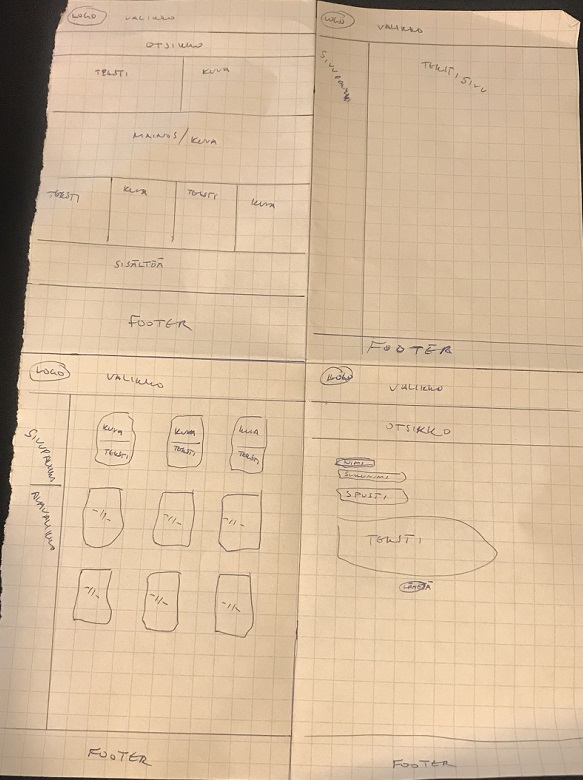 LOGO VALIKKO
OTSIKKO
TEKSTI KUVA
MAINOS/KUVA
TEKSTI KUVA TEKSTI KUVA
SISÄLTÖÄ
FOOTER
LOGO VALIKKO
SIVUPALKKI
TEKSTISIVU
FOOTER
LOGO VALIKKO
SIVUPALKKI
ALAVALIKKO
KUVA KUVA KUVA
TEKSTI TEKSTI TEKSTI
-//- -//- -//-
-//- -//- -//-
FOOTER
LOGO VALIKKO
OTSIKKO
NIMI
SUKUNIMI
SPOSTI
TEKSTI
LÄHETÄ
FOOTER